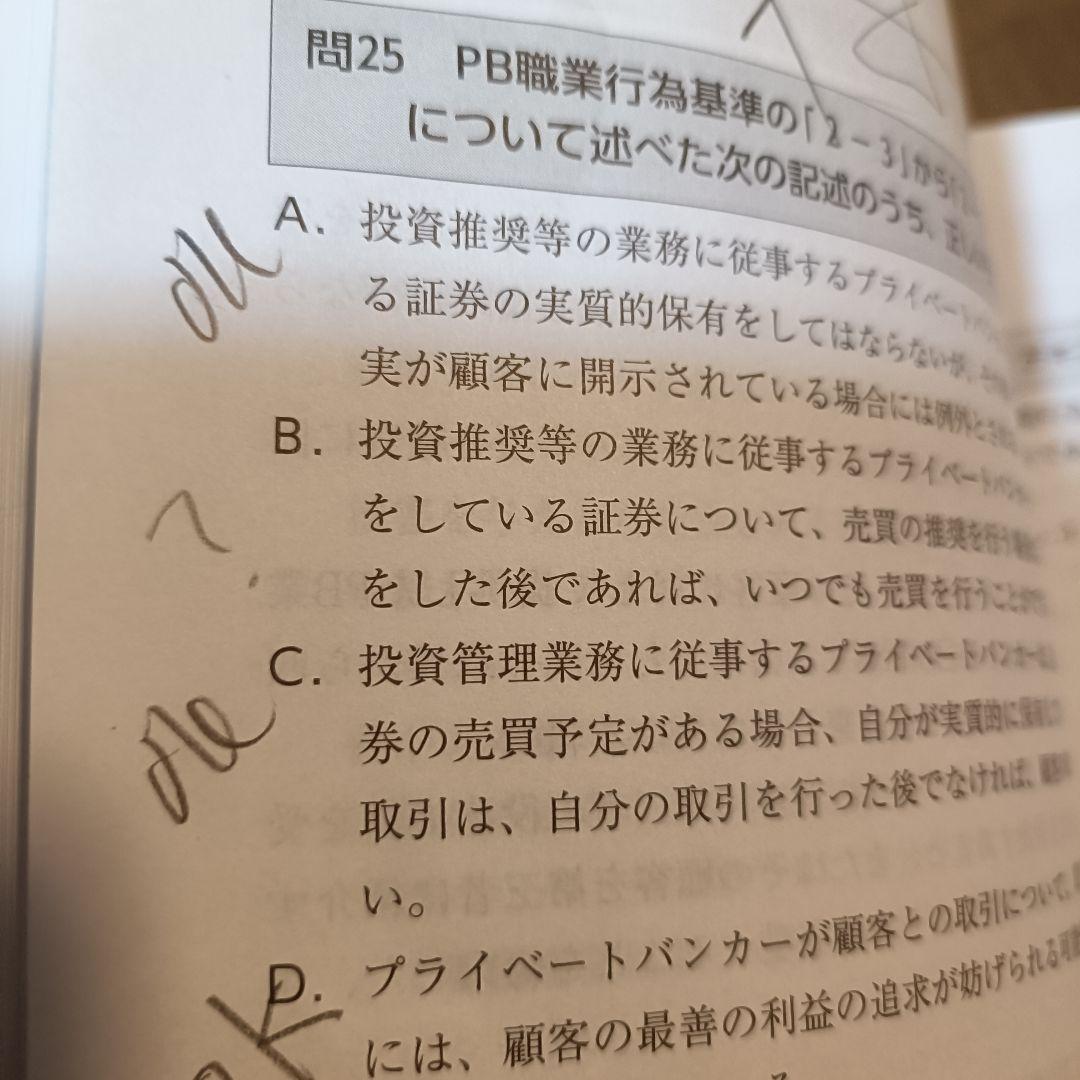 問25 PB職業行為基準の「2-3」から「2
について述べた次の記述のうち、正し
A. 投資推奨等の業務に従事するプライベートバン
る証券の実質的保有をしてはならないが、その
実が顧客に開示されている場合には例外とされ
B. 投資推奨等の業務に従事するプライベートバンカー
をしている証券について、売買の推奨を行う場合
をした後であれば、いつでも売買を行うことができ
C. 投資管理業務に従事するプライベートバンカーは、
券の売買予定がある場合、自分が実質的に保有
取引は、自分の取引を行った後でなければ、顧客
い。
D. プライベートバンカーが顧客との取引について、
には、顧客の最善の利益の追求が妨げられる可能